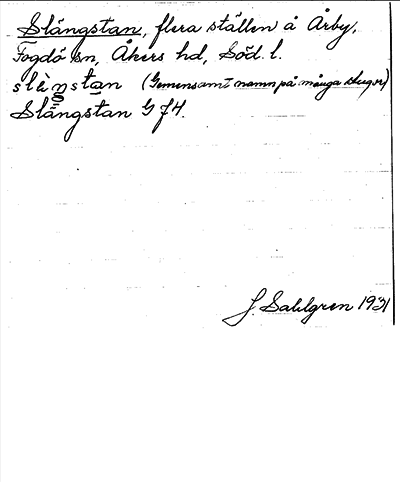 Slängstan, flera ställen å Årby,
Fogdö sn, Åkers hd, Söd. l.
slèŋstan (Gemensamt namn på många stugor)
Slängstan G J 4.
J. Sahlgren 1931